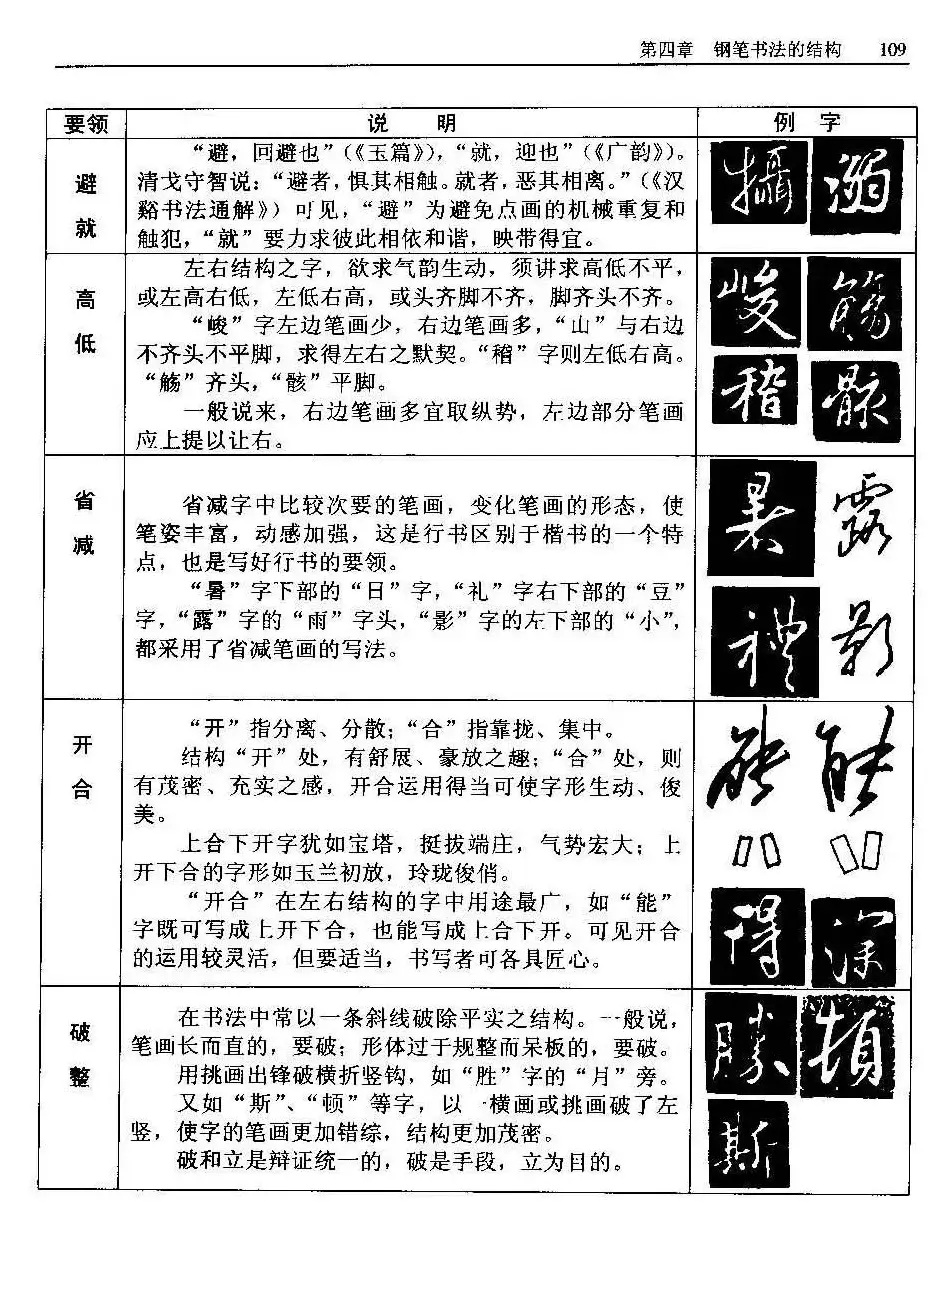 第四章 钢笔书法的结构 109
要领 说 明 例 字
避就
“避，回避也”(《玉篇》)，“就，迎也”(《广韵》)。
清戈守智说：“避者，惧其相触。就者，恶其相离。”(《汉
谿书法通解》) 可见，“避”为避免点画的机械重复和
触犯，“就”要力求彼此相依和谐，映带得宜。
攝 溺
高低
左右结构之字，欲求气韵生动，须讲求高低不平，
或左高右低，左低右高，或头齐脚不齐，脚齐头不齐。
“峻”字左边笔画少，右边笔画多，“山”与右边
不齐头不平脚，求得左右之默契。“稽”字则左低右高。
“觞”齐头，“骸”平脚。
一般说来，右边笔画多宜取纵势，左边部分笔画
应上提以让右。
峻 觞
稽 骸
省减
省减字中比较次要的笔画，变化笔画的形态，使
笔姿丰富，动感加强，这是行书区别于楷书的一个特
点，也是写好行书的要领。
“暑”字下部的“日”字，“礼”字右下部的“豆”
字，“露”字的“雨”字头，“影”字的左下部的“小”，
都采用了省减笔画的写法。
暑 露
禮 影
开合
“开”指分离、分散；“合”指靠拢、集中。
结构“开”处，有舒展、豪放之趣；“合”处，则
有茂密、充实之感，开合运用得当可使字形生动、俊
美。
上合下开字犹如宝塔，挺拔端庄，气势宏大；上
开下合的字形如玉兰初放，玲珑俊俏。
“开合”在左右结构的字中用途最广，如“能”
字既可写成上开下合，也能写成上合下开。可见开合
的运用较灵活，但要适当，书写者可各具匠心。
能 能
得 深
破整
在书法中常以一条斜线破除平实之结构。一般说，
笔画长而直的，要破；形体过于规整而呆板的，要破。
用挑画出锋破横折竖钩，如“胜”字的“月”旁。
又如“斯”、“顿”等字，以一横画或挑画破了左
竖，使字的笔画更加错综，结构更加茂密。
破和立是辩证统一的，破是手段，立为目的。
勝 頓
斯